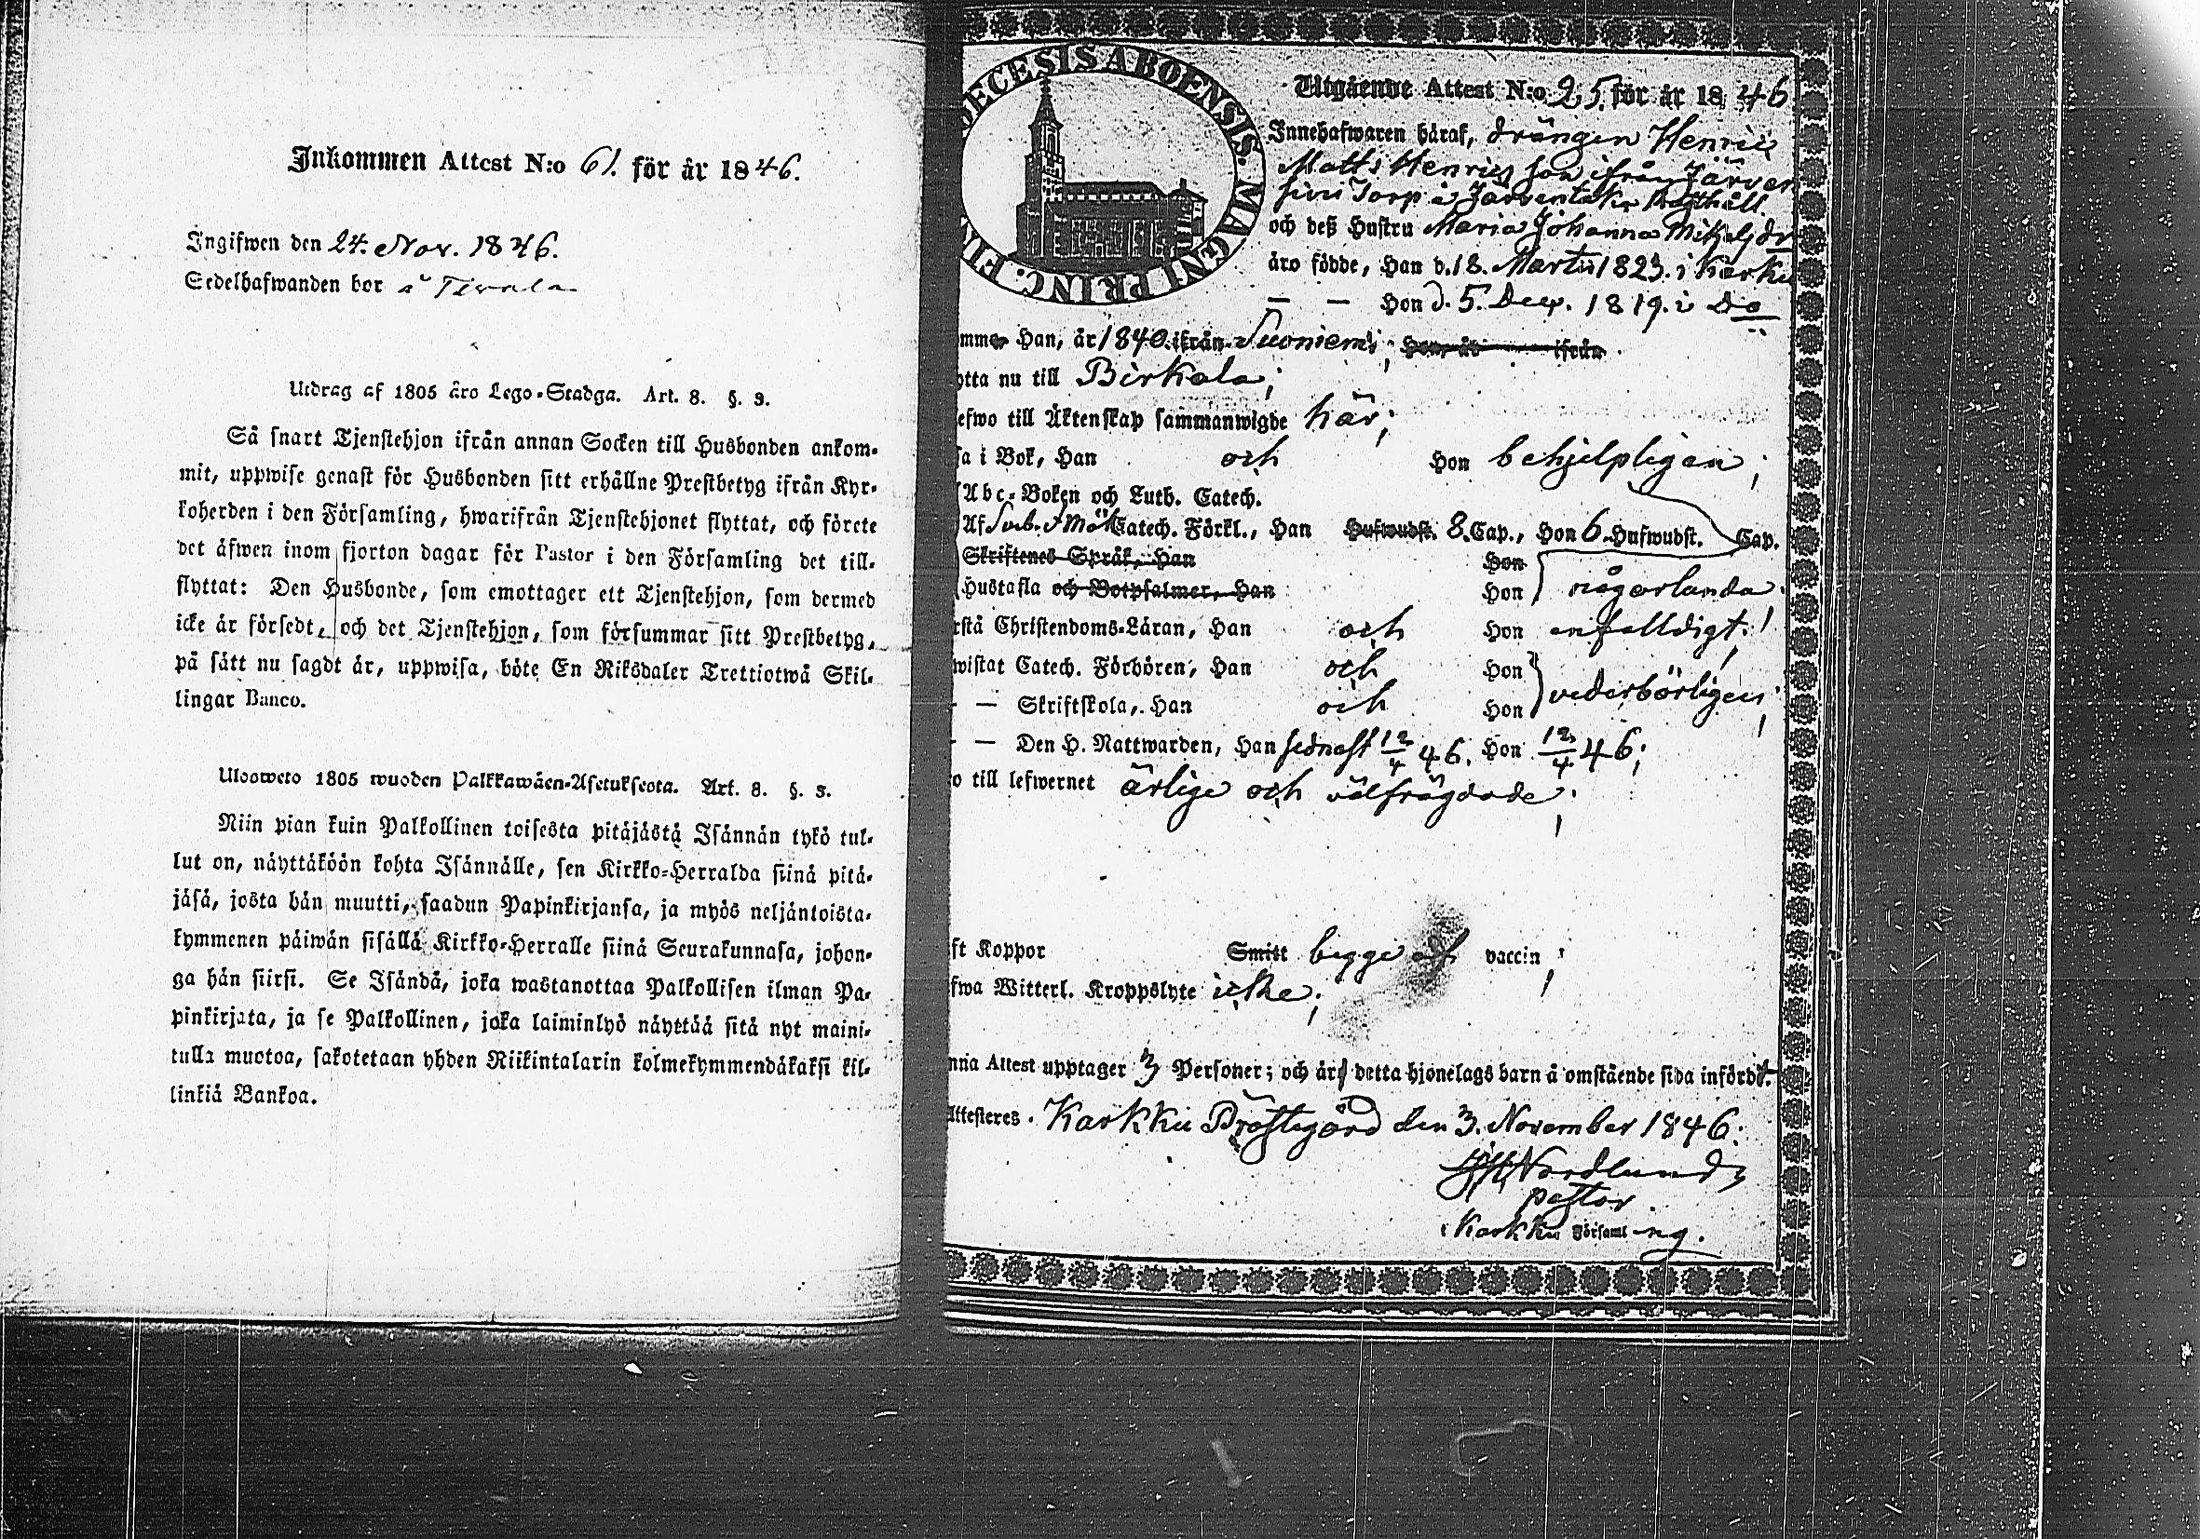 Inkommen Attest N:o 61. för år 1846.
Ingifwen den 24. Nov. 1846.
Sedelhafwanden bor å
Utdrag af 1805 åro Lego-Stadga. Art. 8. §. 3.
Så snart Tjenstehjon ifrån annan Socken till Husbonden ankom-
mit, uppwise genast för Husbonden sitt erhållne Prestbetyg ifrån Kyr-
koherden i den Församling, hwarifrån Tjenstehjonet flyttat, och förete
det äfwen inom fjorton dagar för Pastor i den Församling det till-
flyttat: Den Husbonde, som emottager ett Tjenstehjon, som dermed
icke är försedt, och det Tjenstehjon, som försummar sitt Prestbetyg,
på sätt nu sagdt är, uppwisa, böte En Riksdaler Trettiotwå Skil-
lingar Banco.
Ulosweto 1805 wuoden Palkkawäen-Asetuksesta. Art. 8. §. 3.
Niin pian kuin Palkollinen toisesta pitäjästä Isännän tykö tul-
lut on, näyttäköön kohta Isännälle, sen Kirkko-Herralda siinä pitä-
jäsä, josta hän muutti, saadun Papinkirjansa, ja myös neljäntoista-
kymmenen päiwän sisällä Kirkko-Herralle siinä Seurakunnasa, johon-
ga hän siirsi. Se Isändä, joka wastanottaa Palkollisen ilman Pa-
pinkirjata, ja se Palkollinen, joka laiminlyö näyttää sitä nyt maini-
tulla muotoa, sakotetaan yhden Riikintalarin kolmekymmendäkaksi kil-
linkiä Bankoa.
DIOECESIS ABOENSIS. MAGNI PRINC. FIN
Utgående Attest N:o 25. för år 1846
Innehafwaren häraf, drängen Henric
Matts Henrics son ifrån Järven
sivu Torp å Järventaka
och deß Hustru Maria Johanna Mikelsdr
äro födde, Han d. 18. Martii 1823. i Karku
— — Hon d. 5. Dec. 1819. i Do
omme Han, år 1840. ifrån Suoniemi; Hon, år ifrån
otta nu till Birkala;
efwo till Äktenskap sammanwigde här;
sa i Bok, Han och Hon behjelpligen;
Abc-Boken och Luth. Catech.
Af Catech. Förkl., Han Hufwudst. 8. Cap., Hon 6. Hufwudst. Cap.
Skriftenes Språk, Han Hon
Hustafla och Botpsalmer, Han Hon någorlunda
rstå Christendoms-Läran, Han och Hon enfalldigt;
wistat Catech. Förhören, Han och Hon
— — Skriftskola, Han och Hon vederbörligen;
— — Den H. Nattwarden, Han sednast 12/4 46. Hon 12/4 46;
o till lefwernet ärlige och välfrägdade;
ft Koppor Smitt begge af vaccin;
fwa Witterl. Kroppslyte icke;
nna Attest upptager 3 Personer; och är detta hjonelags barn å omstående sida infördt.
Attesteres. Karkku Prästegård den 3. November 1846.
Nordlund
pastor
i Karkku Församling.